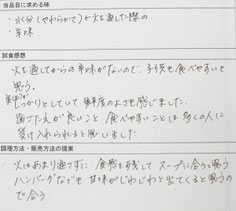 当品目に求める味
・水分(やわらかさ)が火を通した際の
・辛味
試食感想
・火を通してからの辛味がないので、子供も食べやすいと
思う。
しっかりとしていて鮮度のよさを感じました。
歯ごたえが良いこと、食べやすいことは多くの人に
受け入れられると思いました。
調理方法・販売方法の提案
・火はあまり通さずに、食感を残して スープに合うと思う
ハンバーグなどでも 甘味がじわじわと出てくると思うの
で合う。